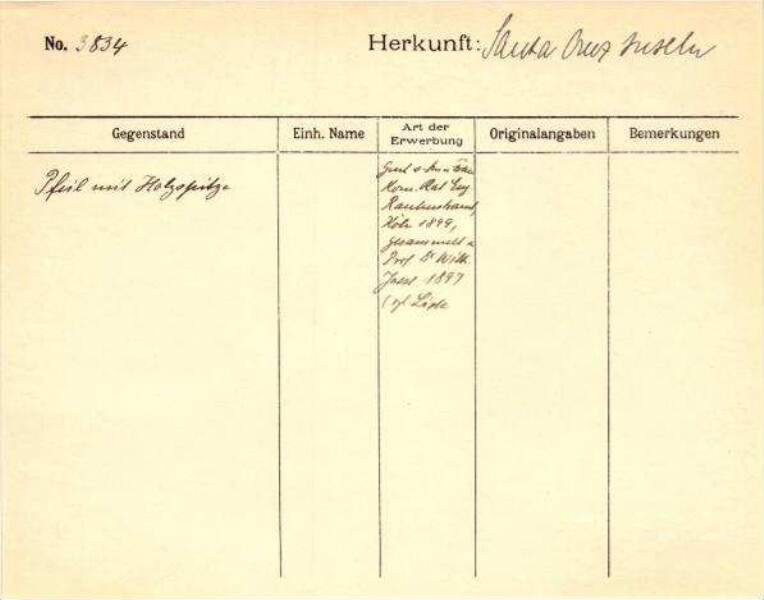 No. 3834
Herkunft: Santa Cruz Inseln
Gegenstand
Einh. Name
Art der
Erwerbung
Originalangaben
Bemerkungen
Pfeil mit Holzspitze
Kom. Rat Eug
Rautenstrauch,
Köln 1899,
gesammelt v
Prof Dr Wilh.
Joest 1897
(vgl Liste